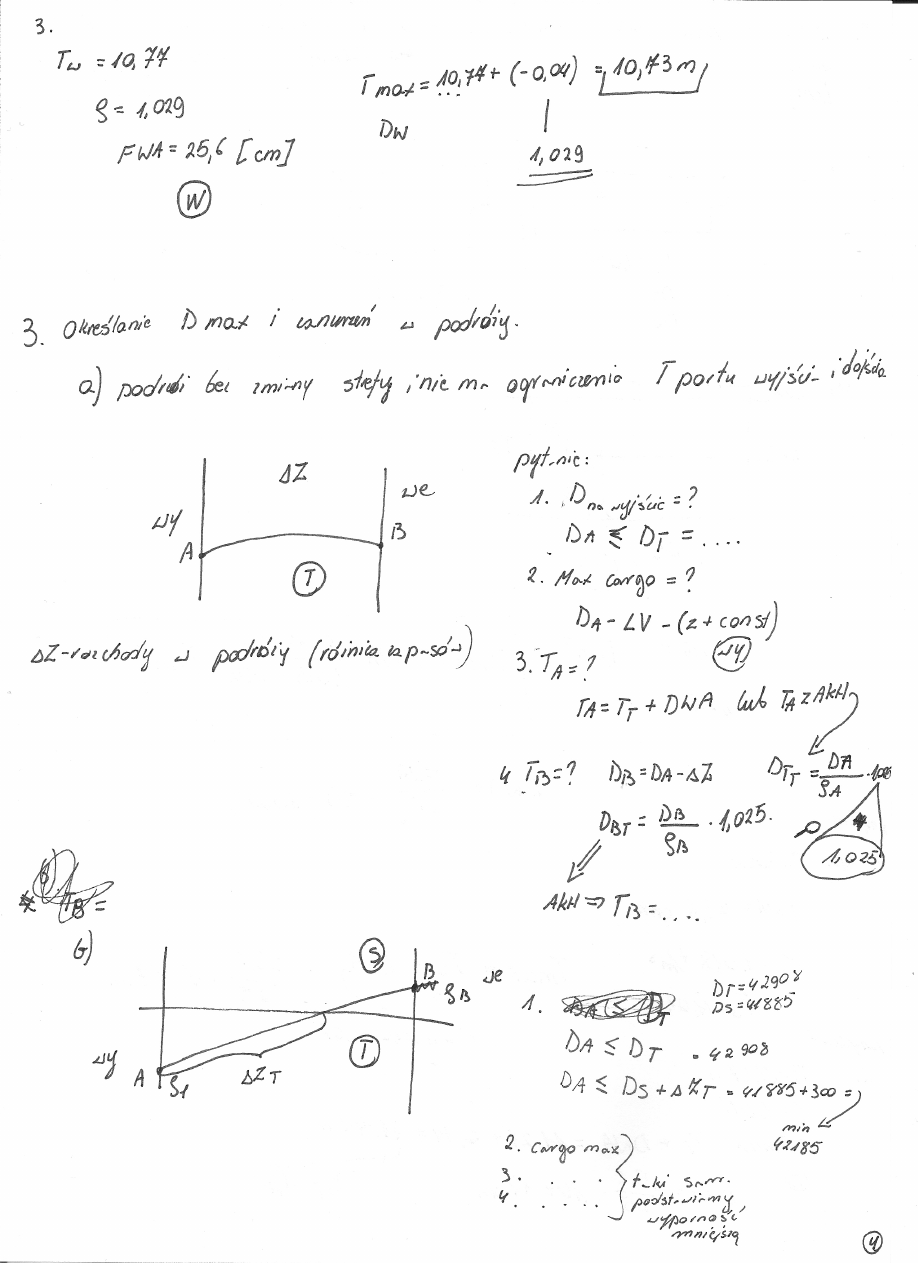 3.
Tw = 10,77
ρ = 1,029
FWA = 25,6 [cm]
W
Tmax = 10,77 + (-0,04) = 10,73 m
DW
1,029
3. Określanie D max i zanurzeń w podróży.
a) podróż bez zmiany strefy i nie ma ograniczenia T portu wyjścia i dojścia
ΔZ
wy
we
A
B
T
ΔZ - rozchody w podróży (różnica zapasów)
pytanie:
1. D na wyjście = ?
DA ≤ DT = ....
2. Max cargo = ?
DA - LV - (z + const)
wy
3. TA = ?
TA = TT + DWA lub TA z AKH
DTT = DA/ρA · 1,025
4 TB = ? DB = DA - ΔZ
1,025
DBT = DB/ρB · 1,025.
AKH ⇒ TB = ....
TB =
b)
S
B
we
ρB
wy
A
ρ1
ΔZT
T
1. DA ≤ DT
DT = 42908
DS = 41885
DA ≤ DT = 42908
DA ≤ DS + ΔZT = 41885 + 300 =
min
42185
2. Cargo max
3. ....
4. .....
taki sam.
podstawiamy
wyporność
mniejszą
4